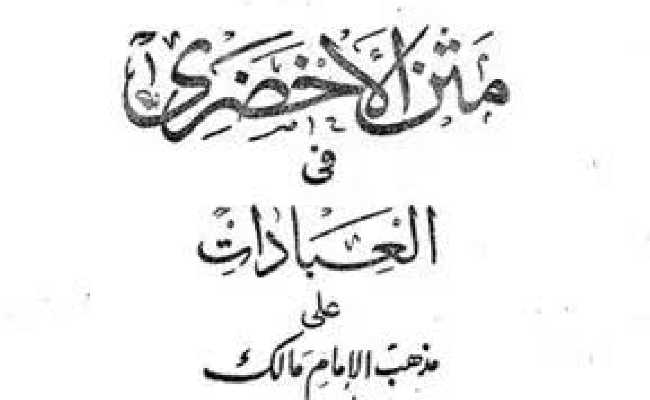 متن الأخضرى
فى
العبادات
على
مذهب الإمام مالك